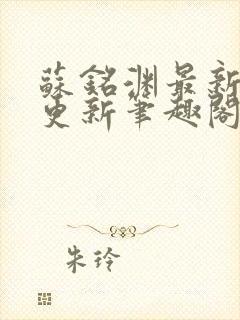 蘇銘渊最新
更新筆趣閣
朱玲